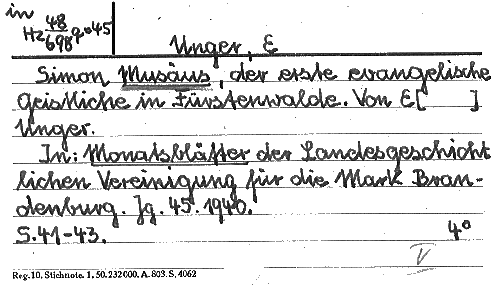 in
Hz 48/698 q. 45
Unger, E
Simon Musäus, der erste evangelische
Geistliche in Fürstenwalde. Von E[ ]
Unger.
In: Monatsblätter der Landesgeschicht
lichen Vereinigung für die Mark Bran-
denburg. Jg. 45. 1940.
S. 41-43. 4°
V
Reg. 10. Stichnote. 1. 50. 232000. A. 803. S. 4062